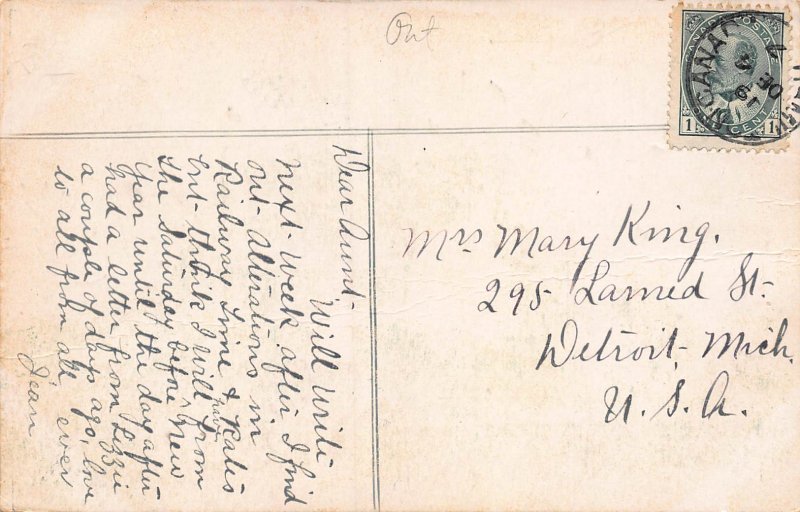 Ont
CANADA POSTAGE
1 CENT 1
CANADA
30
Dear Aunt-
Will write
next week after I find
out alterations in
Railway time & Rates
but think I will have from
the Saturday before New
Year until the day after
had a letter from Lizzie
a couple of days ago, love
to all from all ever
Jean
Mrs Mary King.
295 Larned St.
Detroit, Mich.
U.S.A.